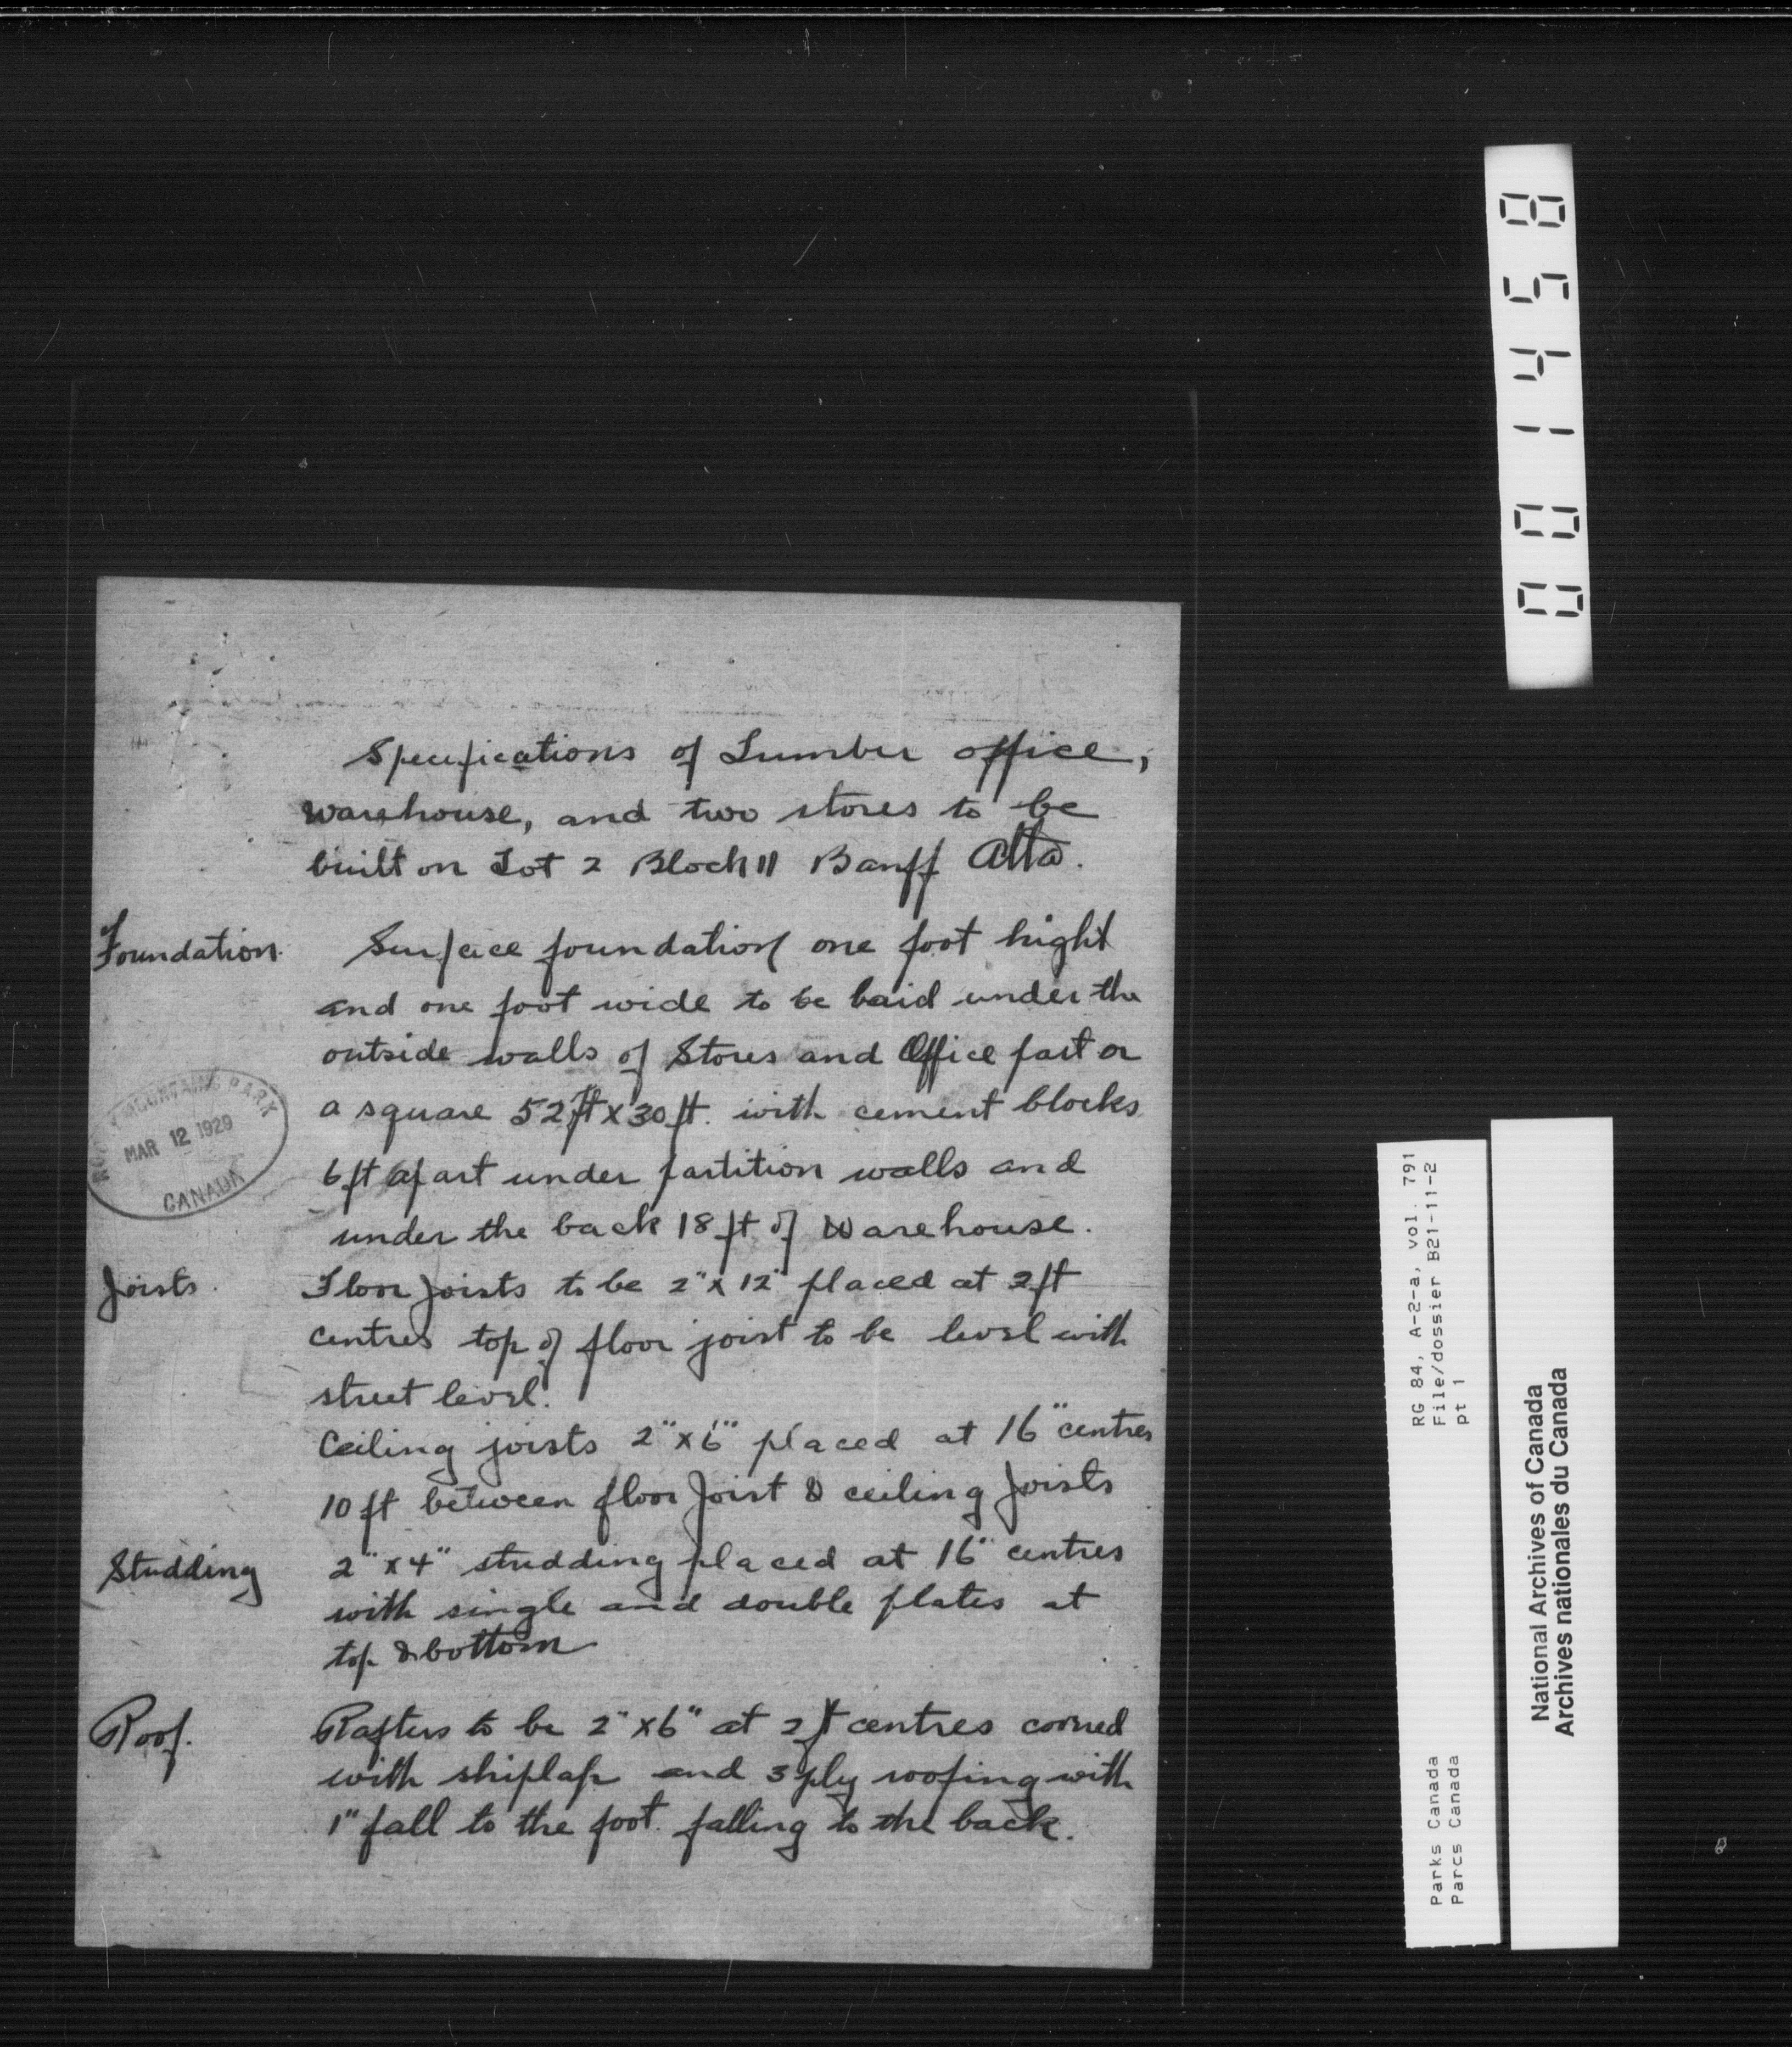 Specifications of Lumber office,
warehouse, and two stores to be
built on Lot 2 Block 11 Banff Alta.
Foundation. Surface foundation one foot hight
and one foot wide to be laid under the
outside walls of Stores and Office part or
a square 52 ft x 30 ft. with cement blocks
6 ft apart under partition walls and
under the back 18 ft of Warehouse.
Joists. Floor joists to be 2" x 12" placed at 2 ft
centres top of floor joist to be level with
street level.
Ceiling joists 2" x 6" placed at 16" centres
10 ft between floor joist & ceiling joists
Studding 2" x 4" studding placed at 16" centres
with single and double plates at
top & bottom
Roof. Rafters to be 2" x 6" at 2 ft centres covered
with shiplap and 3 ply roofing with
1" fall to the foot. falling to the back.
ROCKY MOUNTAINS PARK
MAR 12 1929
CANADA
001458
RG 84, A-2-a, vol. 791
File/dossier B21-11-2
pt 1
Parks Canada
Parcs Canada
National Archives of Canada
Archives nationales du Canada